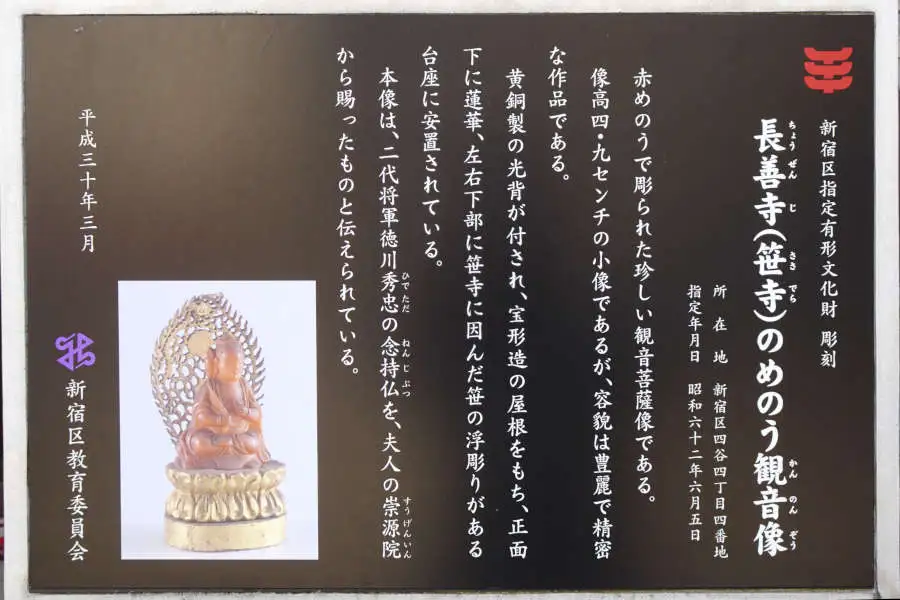 新宿区指定有形文化財 彫刻
長善寺(笹寺)のめのう観音像
ちょうぜんじ ささでら かんのんぞう
所在地 新宿区四谷四丁目四番地
指定年月日 昭和六十二年六月五日
赤めのうで彫られた珍しい観音菩薩像である。
像高四・九センチの小像であるが、容貌は豊麗で精密
な作品である。
黄銅製の光背が付され、宝形造の屋根をもち、正面
下に蓮華、左右下部に笹寺に因んだ笹の浮彫りがある
台座に安置されている。
本像は、二代将軍徳川秀忠の念持仏を、夫人の崇源院
ひでただ ねんじぶつ すうげんいん
から賜ったものと伝えられている。
平成三十年三月
新宿区教育委員会